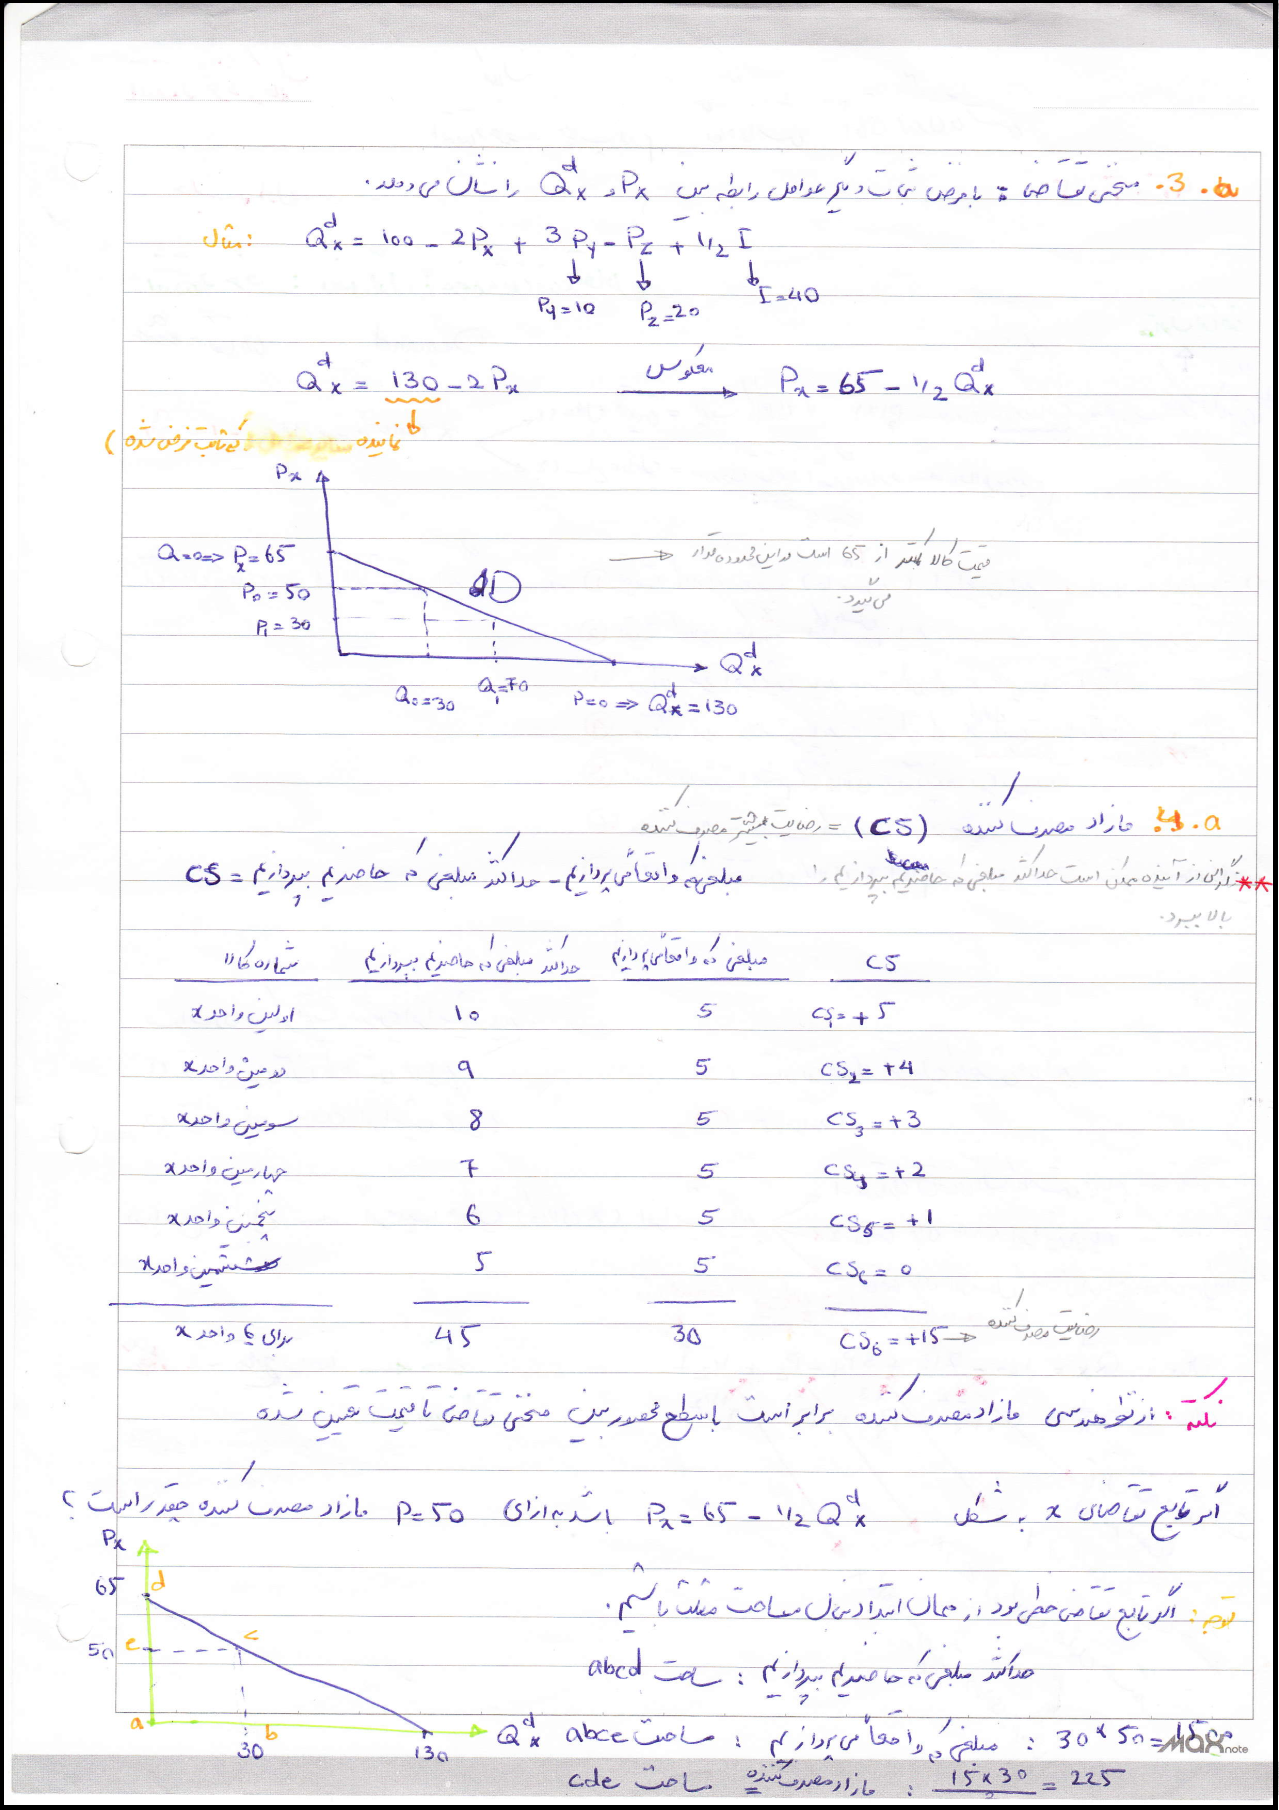 3.b. منحنی تقاضا : با فرض ثبات دیگر عوامل رابطه بین Px و Qdx را نشان می دهد.
مثال: Qdx = 100 - 2Px + 3Py - Pz + 1/2 I
Py=10 Pz=20 I=40
Qdx = 130 - 2Px معکوس Px = 65 - 1/2 Qdx
نماینده که ثابت فرض شده )
Px
Q=0 => Px=65
قیمت کالا کمتر از 65 است و در این محدوده قرار
می گیرد.
P0 = 50
D
P1 = 30
Qdx
Q0=30 Q1=70 P=0 => Qdx=130
4.a. مازاد مصرف کننده (CS) = رضایت بیشتر مصرف کننده
مبلغی که واقعاً می پردازیم - حداکثر مبلغی که حاضریم بپردازیم = CS
** نگرانی از آینده ممکن است حداکثر مبلغی که حاضریم بپردازیم را
بالا ببرد.
شماره کالا حداکثر مبلغی که حاضریم بپردازیم مبلغی که واقعاً می پردازیم CS
اولین واحد x 10 5 CS1= +5
دومین واحد x 9 5 CS2= +4
سومین واحد x 8 5 CS3= +3
چهارمین واحد x 7 5 CS4= +2
پنجمین واحد x 6 5 CS5= +1
ششمین واحد x 5 5 CS6= 0
برای 6 واحد x 45 30 CS6= +15 → رضایت مصرف کننده
نکته : از نظر هندسی مازاد مصرف کننده برابر است با سطح محصور بین منحنی تقاضا تا قیمت تعیین شده
اگر تابع تقاضای x به شکل Px = 65 - 1/2 Qdx باشد به ازای P=50 مازاد مصرف کننده چقدر است ؟
توجه : اگر تابع تقاضا خطی بود از همان ابتدا دنبال مساحت مثلث باشیم.
حداکثر مبلغی که حاضریم بپردازیم : مساحت abcd
مبلغی که واقعاً می پردازیم : مساحت abce : 30*50=1500
مازاد مصرف کننده : مساحت cde 15x30/2 = 225
Px
65 d
50 e c
a b Qdx
30 130
Max note